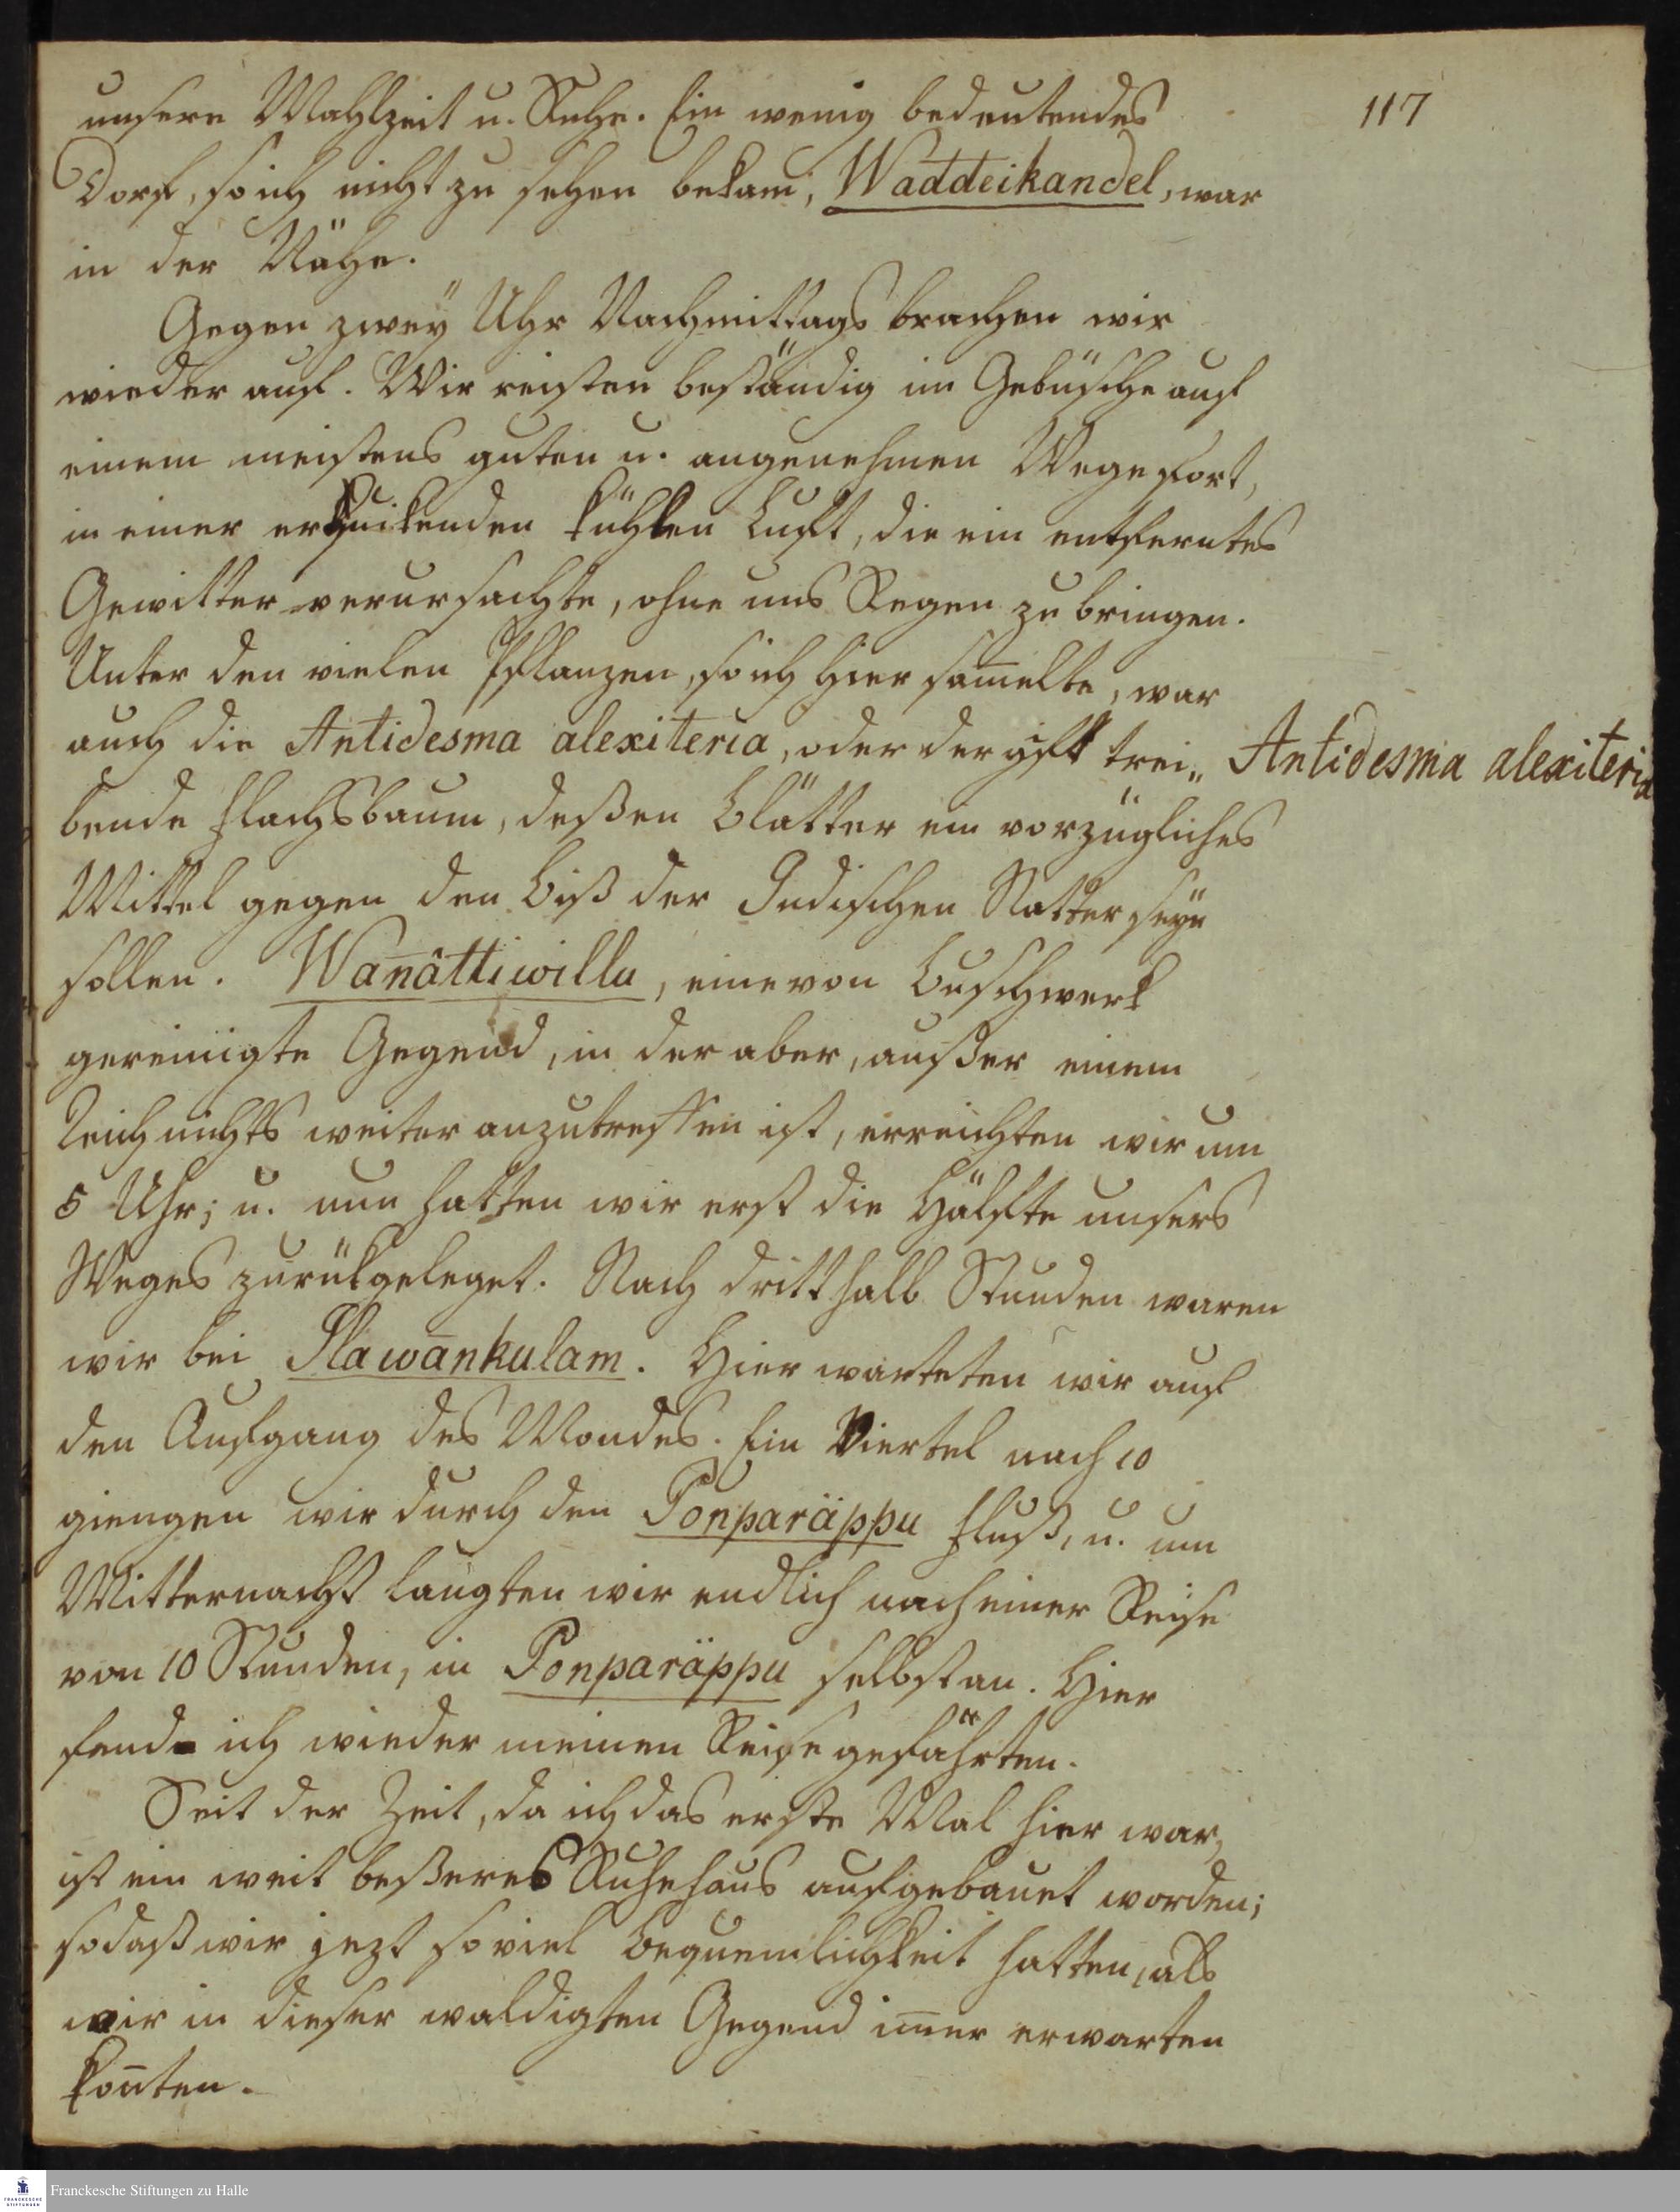 117
unsere Mahlzeit u. Ruhe. Ein wenig bedeutendes
Dorf, so ich nicht zu sehen bekam, Waddeikandel, war
in der Nähe.
Gegen zwey Uhr Nachmittags brachen wir
wieder auf. Wir reisten beständig im Gebüsche auf
einem meistens guten u. angenehmen Wege fort,
in einer erquikenden kühlen Luft, die ein entferntes
Gewitter verursachte, ohne uns Regen zu bringen.
Unter den vielen Pflanzen, so ich hier sam̅elte, war
auch die Antidesma alexiteria, oder der gift trei„
Antidesma alexiteria
bende Flachsbaum, deßen Blätter ein vorzügliches
Mittel gegen den Biß der Indischen Natter seyn
sollen. Wan̅âttiwillu, eine von Buschwerk
gereinigte Gegend, in der aber, außer einem
Teich nichts weiter anzutreffen ist, erreichten wir um
5 Uhr; u. nun hatten wir erst die Hälfte unsers
Weges zurükgeleget. Nach dritthalb Stunden waren
wir bei Ilawānkulam. Hier warteten wir auf
den Aufgang des Mondes. Ein Viertel nach 10
giengen wir durch den Ponparäppu Fluß, u. um
Mitternacht langten wir endlich nach einer Reise
von 10 Stunden, in Ponparäppu selbst an. Hier
fand ich wieder meinen Reisegefährten.
Seit der Zeit, da ich das erste Mal hier war,
ist ein weit beßeres Ruhehaus aufgebauet worden;
sodaß wir jezt so viel Bequemlichkeit hatten, als
wir in dieser waldigten Gegend im̅er erwarten
kon̅ten.
FRANCKESCHE
STIFTUNGEN
Franckesche Stiftungen zu Halle